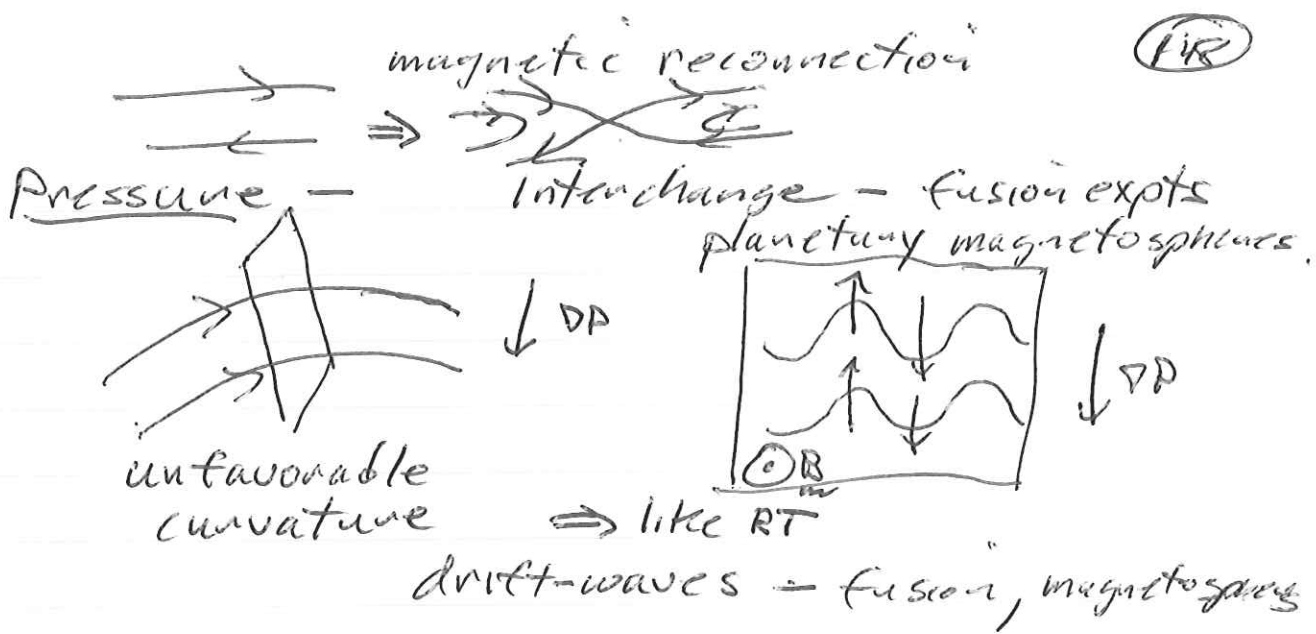 magnetic reconnection
⇒
Pressure – Interchange – fusion expts
planetary magnetospheres.
↓ ∇P
↓ ∇P
⊙ B
unfavorable
curvature ⇒ like RT
drift-waves – fusion, magnetospheres